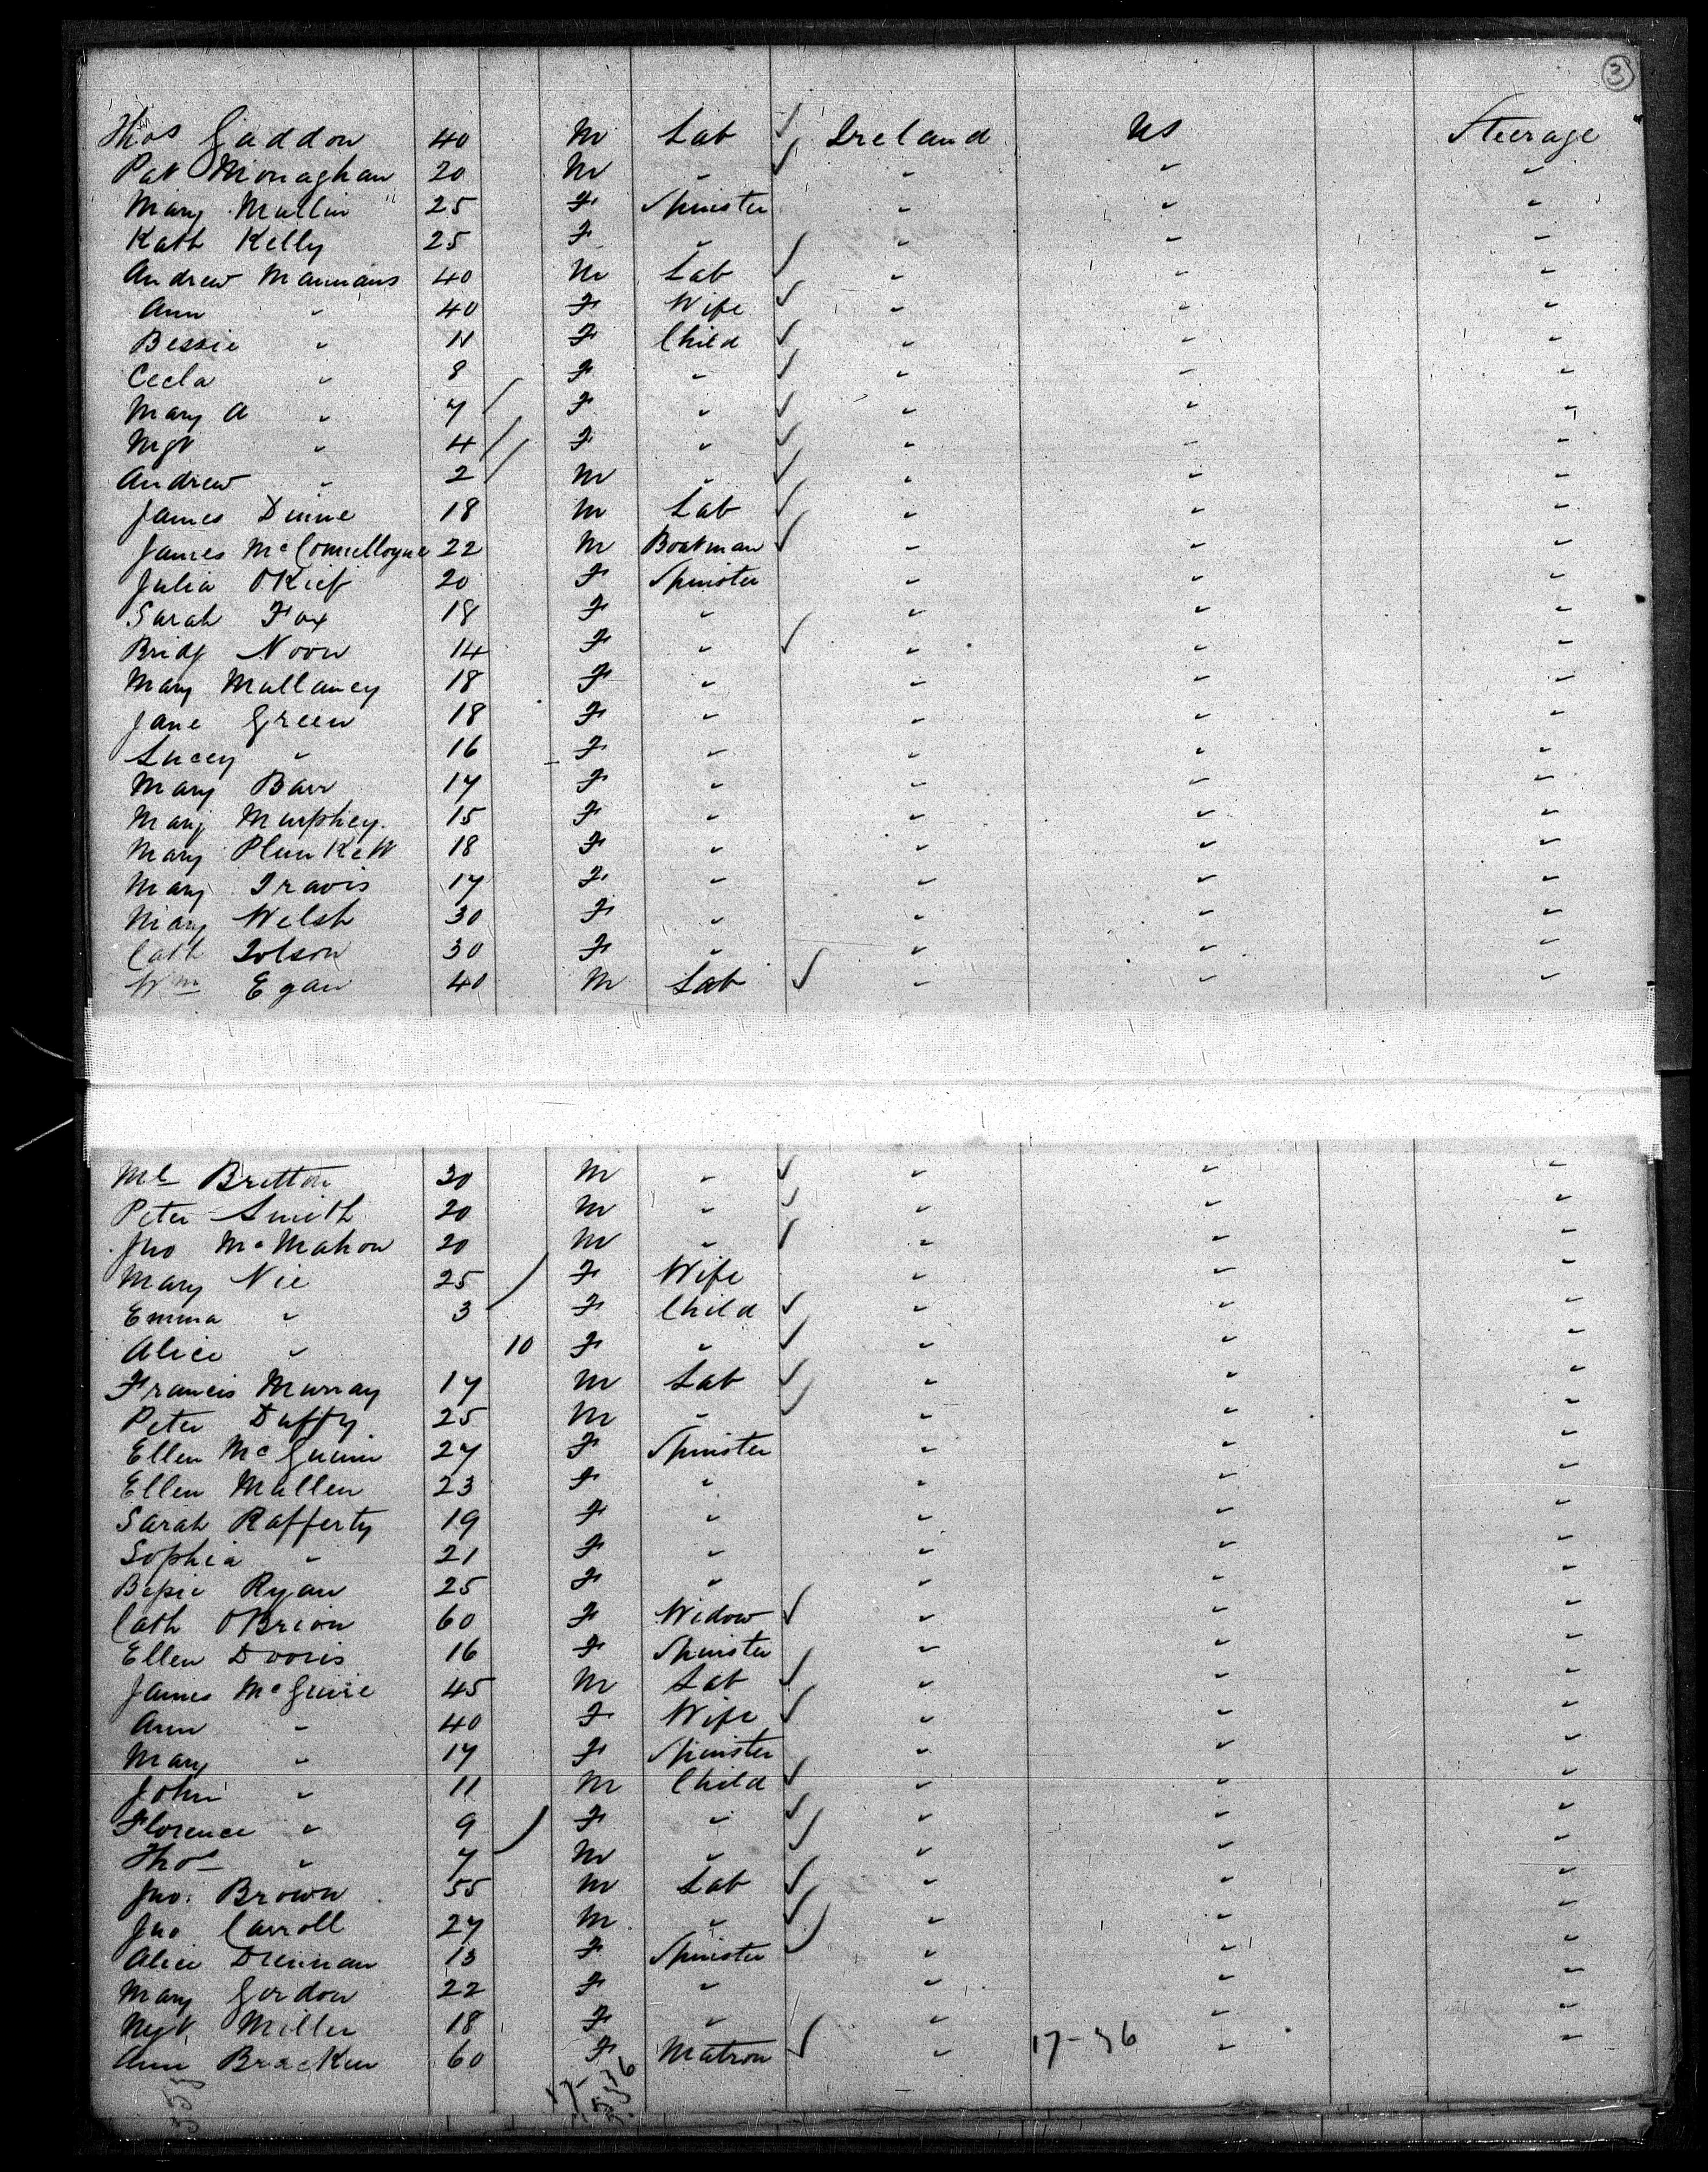 3
Thos Gaddon 40 M Lab ✓ Ireland US Steerage
Pat Monaghan 20 M " ✓ " " "
Mary Mullin 25 F Spinster " " "
Kath Kelly 25 F " " " "
Andrew 40 M Lab ✓ " " "
Ann " 40 F Wife ✓ " " "
Bessie " 11 F Child ✓ " " "
Cecla " 8 F " ✓ " " "
Mary A " 7 F " ✓ " " "
Mgt " 4 F " ✓ " " "
Andrew " 2 M " ✓ " " "
James Dunne 18 M Lab ✓ " " "
James 22 M Boatman ✓ " " "
Julia OKief 20 F Spinster " " "
Sarah Fox 18 F " " " "
Bridg Noon 14 F " ✓ " " "
Mary Mullaney 18 F " " " "
Jane Green 18 F " " " "
Lucey " 16 F " " " "
Mary Barr 17 F " " " "
Mary Murphey 15 F " " " "
Mary Plunkett 18 F " " " "
Mary Travis 17 F " " " "
Mary Welsh 30 F " " " "
Cath Tolson 30 F " " " "
Wm Egan 40 M Lab ✓ " " "
Ml Britton 30 M " ✓ " " "
Peter Smith 20 M " ✓ " " "
Jno McMahon 20 M " ✓ " " "
Mary Nie 25 F Wife " " "
Emma " 3 F Child ✓ " " "
Alice " 10 F " ✓ " " "
Francis Murray 17 M Lab ✓ " " "
Peter Duffy 25 M " ✓ " " "
Ellen McGuinn 27 F Spinster " " "
Ellen Mullen 23 F " " " "
Sarah Rafferty 19 F " " " "
Sophia " 21 F " " " "
Bessie Ryan 25 F " " " "
Cath OBrion 60 F Widow ✓ " " "
Ellen Dooris 16 F Spinster " " "
James McGuire 45 M Lab ✓ " " "
Ann " 40 F Wife ✓ " " "
Mary " 17 F Spinster " " "
John " 11 M Child ✓ " " "
Florence " 9 F " ✓ " " "
Thos " 7 M " ✓ " " "
Jno. Brown 55 M Lab ✓ " " "
Jno Carroll 27 M " ✓ " " "
Alice Drennan 13 F Spinster ✓ " " "
Mary Gordon 22 F " " " "
Mgt Miller 18 F " " " "
Ann Bracken 60 F Matron ✓ " 17-36 " "